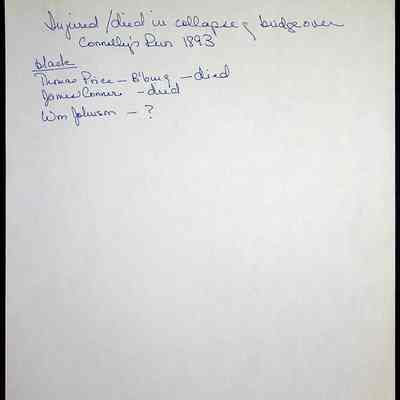 Injured / died in collapse of bridge over
Connelly's Run 1893
black
Thomas Price - B'burg - died
James Conners - died
Wm Johnson - ?